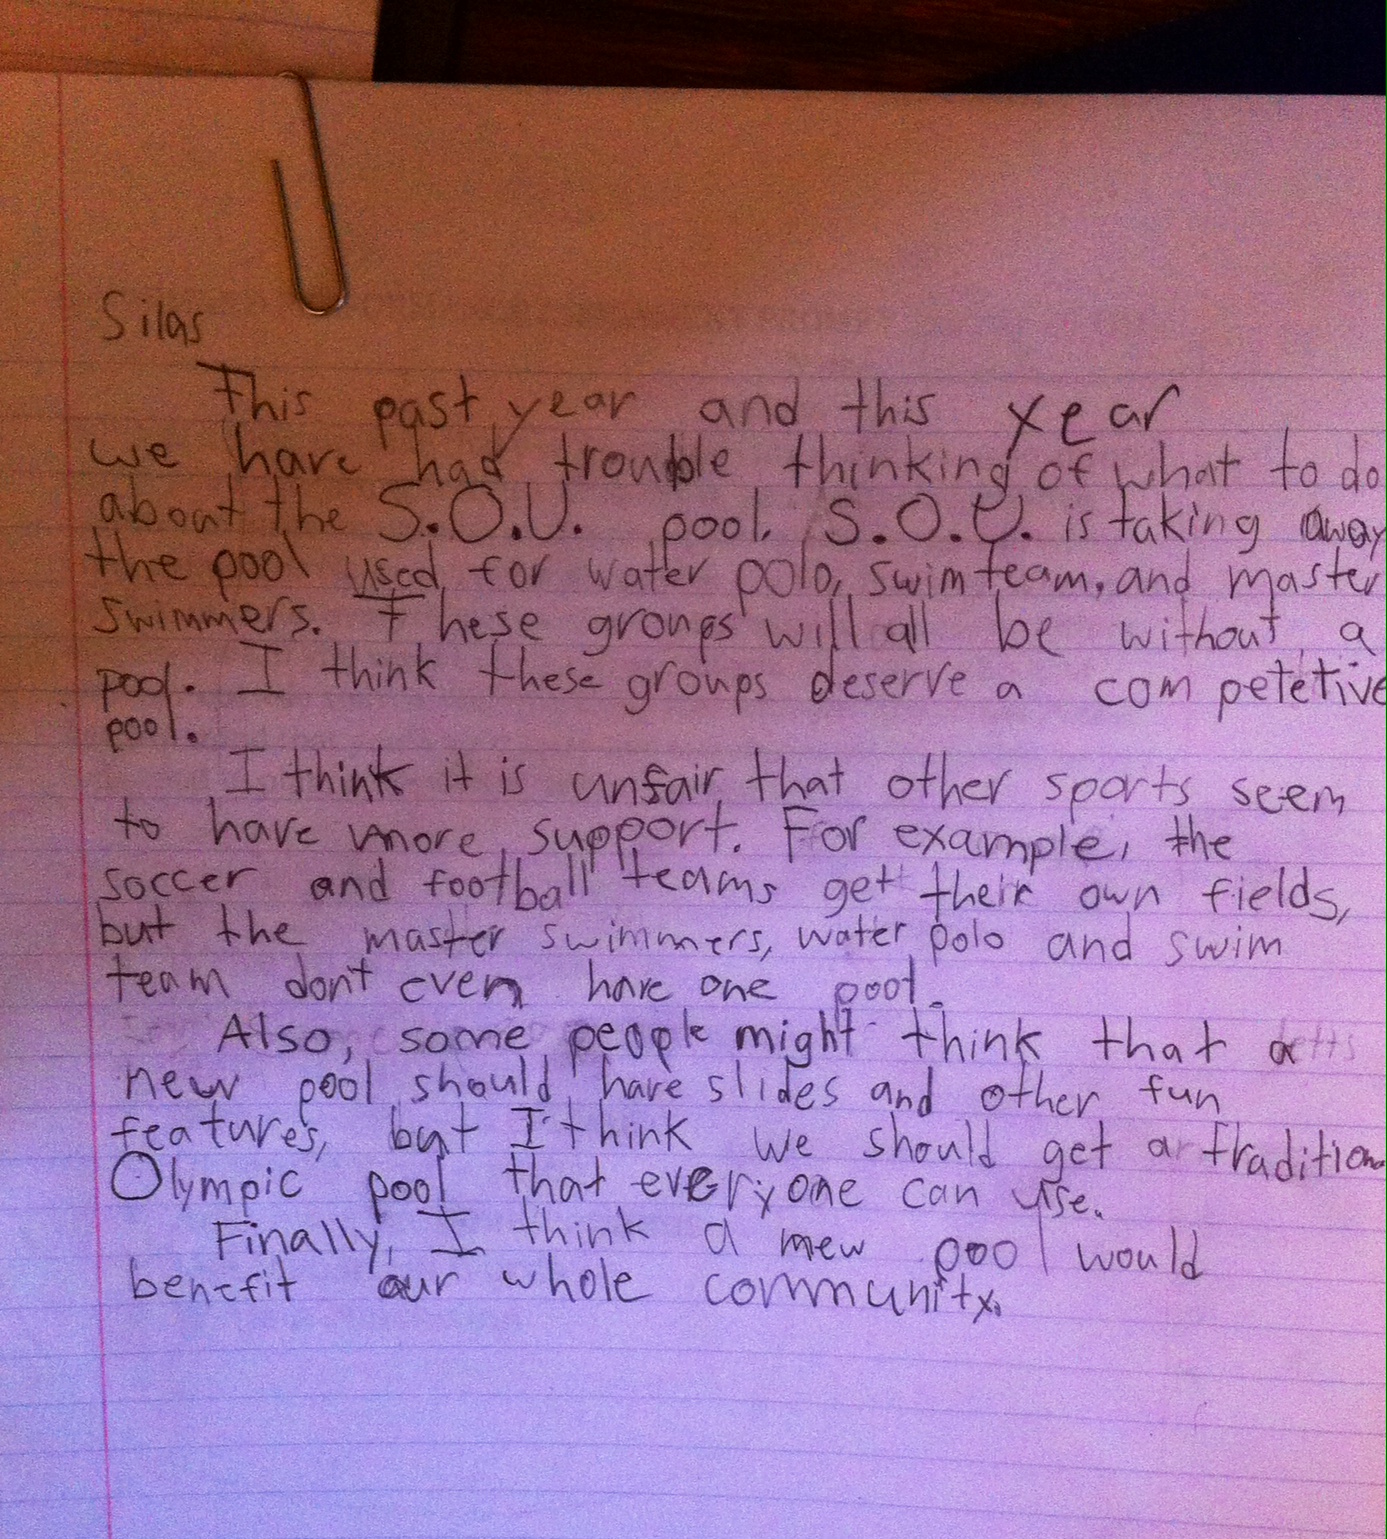 Silas
This past year and this year
we have had trouble thinking of what to do
about the S.O.U. pool. S.O.U. is taking away
the pool used for water polo, swim team, and master
swimmers. These groups will all be without a
pool. I think these groups deserve a competetive
pool.
I think it is unfair that other sports seem
to have more support. For example, the
soccer and football teams get their own fields,
but the master swimmers, water polo and swim
team don't even have one pool.
Also, some people might think that a
new pool should have slides and other fun
features, but I think we should get a tradition
Olympic pool that everyone can use.
Finally, I think a new pool would
benefit our whole community.